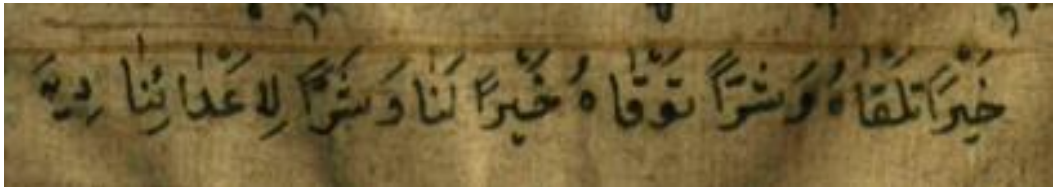 خَيْرًا تَلَقَّاهُ وَشَرًّا تَوَقَّاهُ خَيْرًا لَنَا وَشَرًّا لِاَعْدَائِنَا